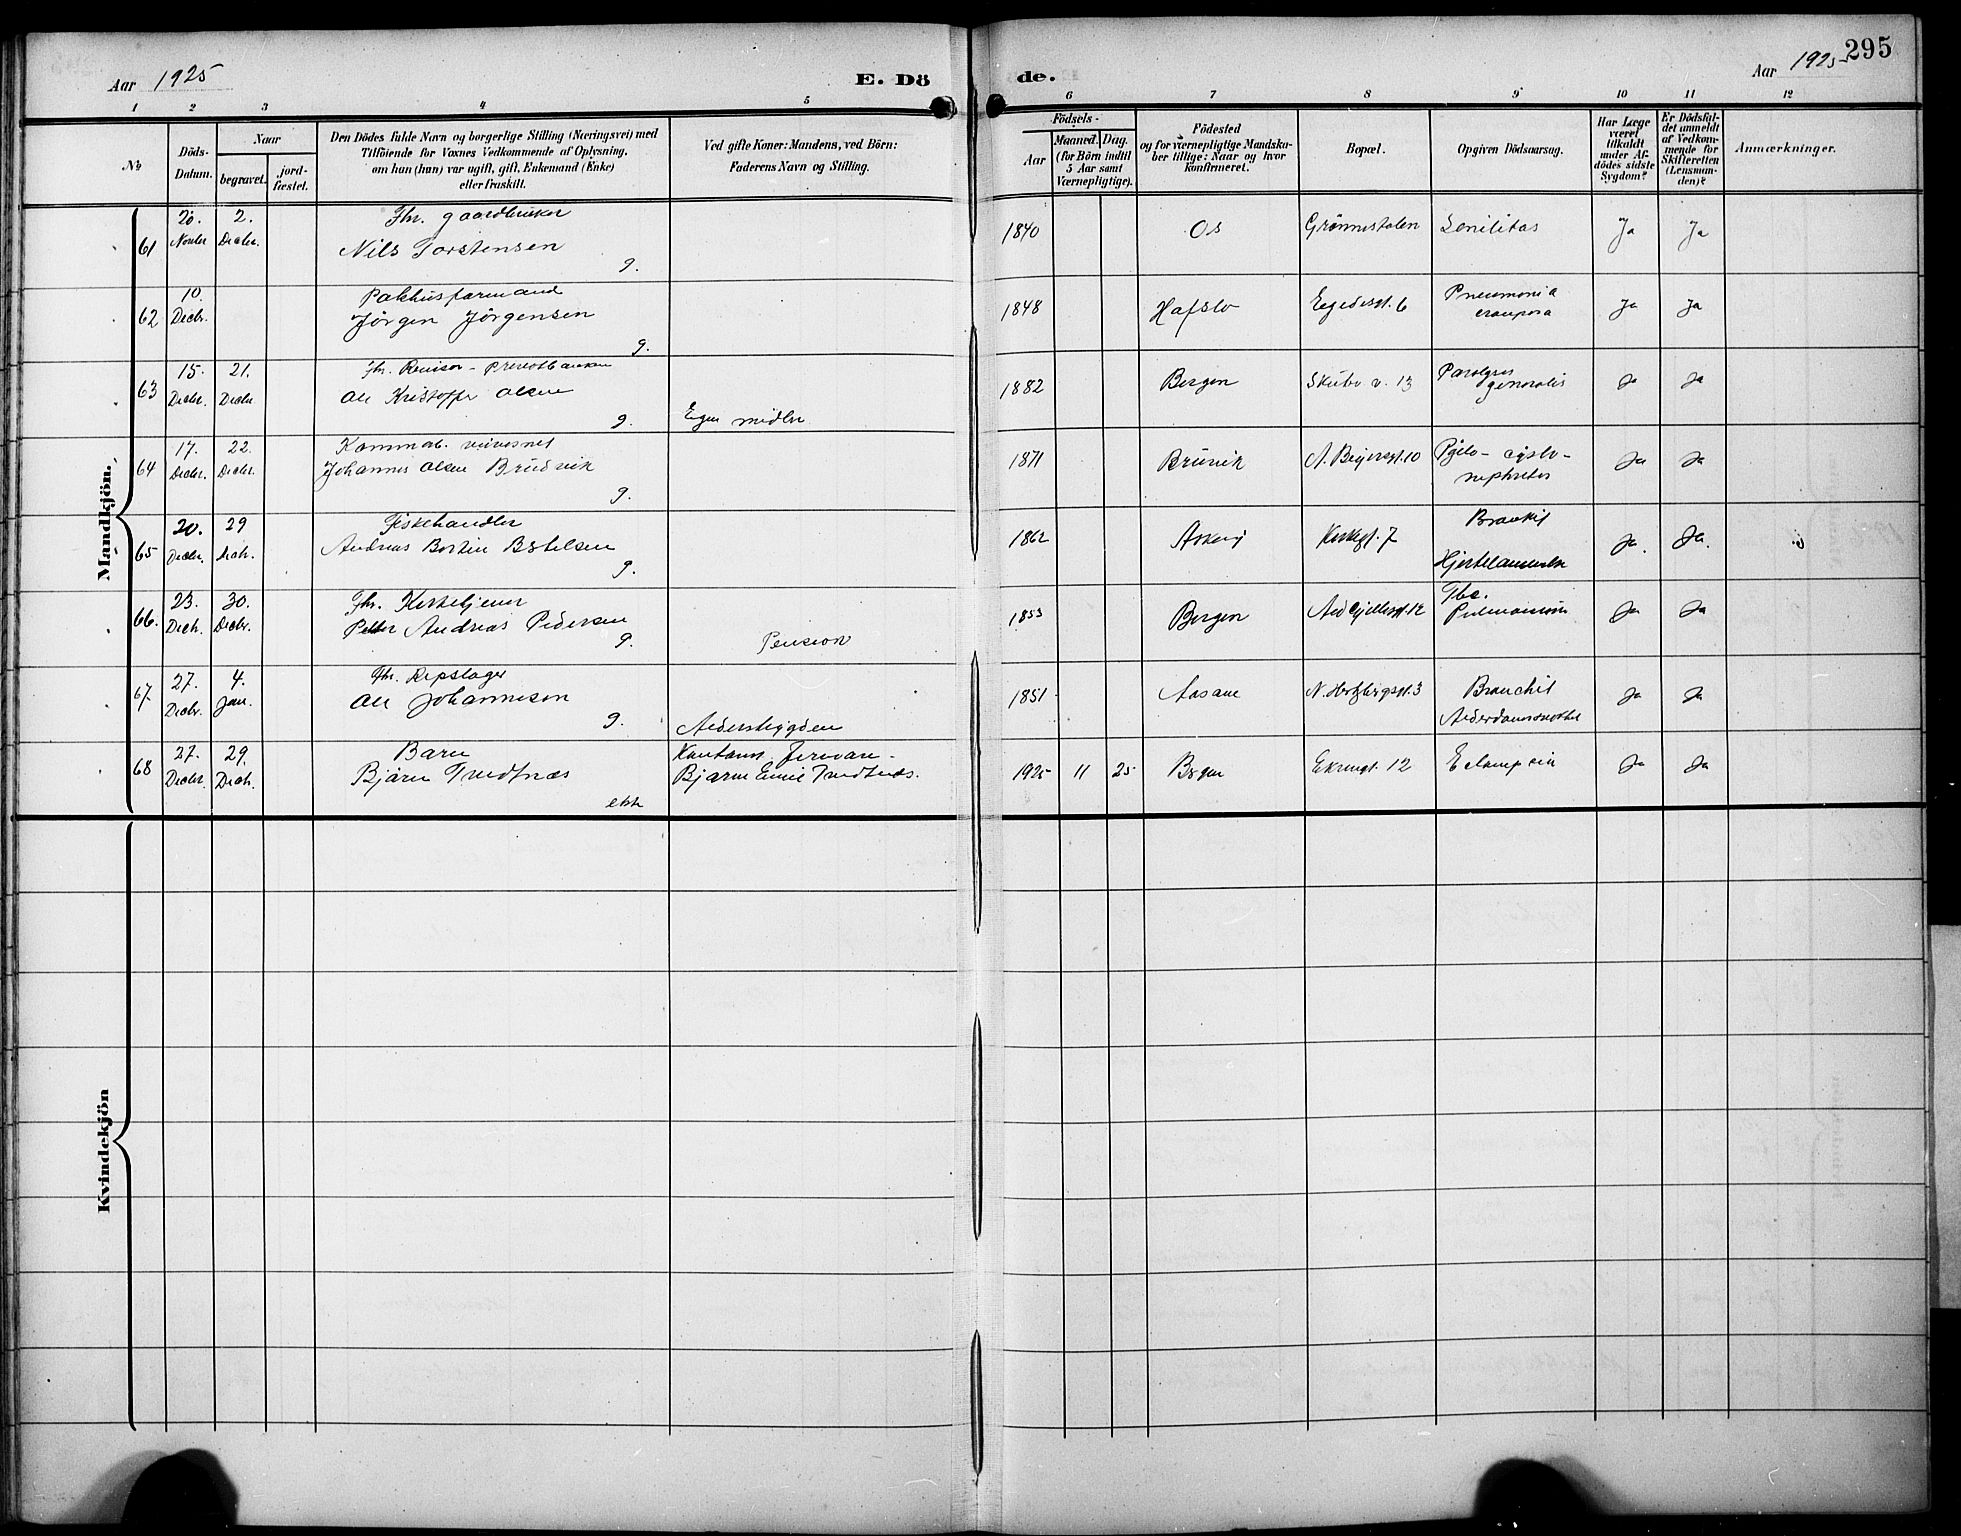 Aar 1925
E. Dö
de.
Aar 1925
295
1 2 3 4 5 6 7 8 9 10 11 12
No
Döds-
Datum.
Naar
begravet.
jord-
fæstet.
Den Dödes fulde Navn og borgerlige Stilling (Næringsvei) med
Tilföiende for Voxnes Vedkommende af Oplysning,
om han (hun) var ugift, gift, Enkemand (Enke)
eller fraskilt.
Ved gifte Koner: Mandens, ved Börn:
Faderens Navn og Stilling.
Födsels-
Aar
Maaned. Dag.
(for Börn indtil
5 Aar samt
Værnepligtige).
Födested
og for værnepligtige Mandska-
ber tillige: Naar og hvor
Konfirmeret.
Bopæl.
Opgiven Dödsaarsag.
Har Læge
været
tilkaldt
under Af-
dödes sidste
Sygdom?
Er Dödsfal-
det anmeldt
af Vedkom-
mende for
Skifteretten
(Lensman-
den)?
Anmærkninger.
Mandkjön.
61
20. 2. Fhr. gaardbruker
Novbr Decbr. Nils Torstensen
g.
1840 Os Grönnestølen Senilitas Ja Ja
62
10. Pakhusformand
Decbr. Jörgen Jörgensen
g.
1848 Hafslo Egedesgt. 6 Pneumonia
crouposa
Ja Ja
63
15. 21. Fhr. Revisor - Privatbanken
Decbr. Decbr Ole Kristoffer Olsen
g. Egne midler
1882 Bergen Skubv. 13 Paralyses
generalis
Ja Ja
64
17. 22.
Decbr. Decbr. Johannes Olsen Brudvik
g.
1871 Bruvik Pyelo - cysto -
nephretes
Ja Ja
65
20. 29 Fiskehandler
Decbr. Decbr. Andreas Bertelsen
g.
1862 Askøy Kirkegt. 7 Bronkit
Hjertelammelse
Ja. Ja.
66.
23. 30. Fhr. Kirketjener
Decb. Decbr. Petter Andreas Pedersen
g. Pension
1853 Bergen Tbc.
Pulmonum
Ja Ja
67.
27. 4. Fhr. Repslager
Decbr. Jan. Ole Johannesen
g. Alderstrygden
1851 Aasane N. Hertzbergsgt. 3 Bronchit
Alderdomssvækkelse
Ja Ja
68
27. 29. Barn
Decbr. Decb. Bjarne Tvedtnæs
ekte
Kontorist, Jernvare-
Bjarne Emil Tvedtnæs.
1925 11 25 Bergen Ekrengt. 12 Eclampsia Ja Ja
Kvindekjön